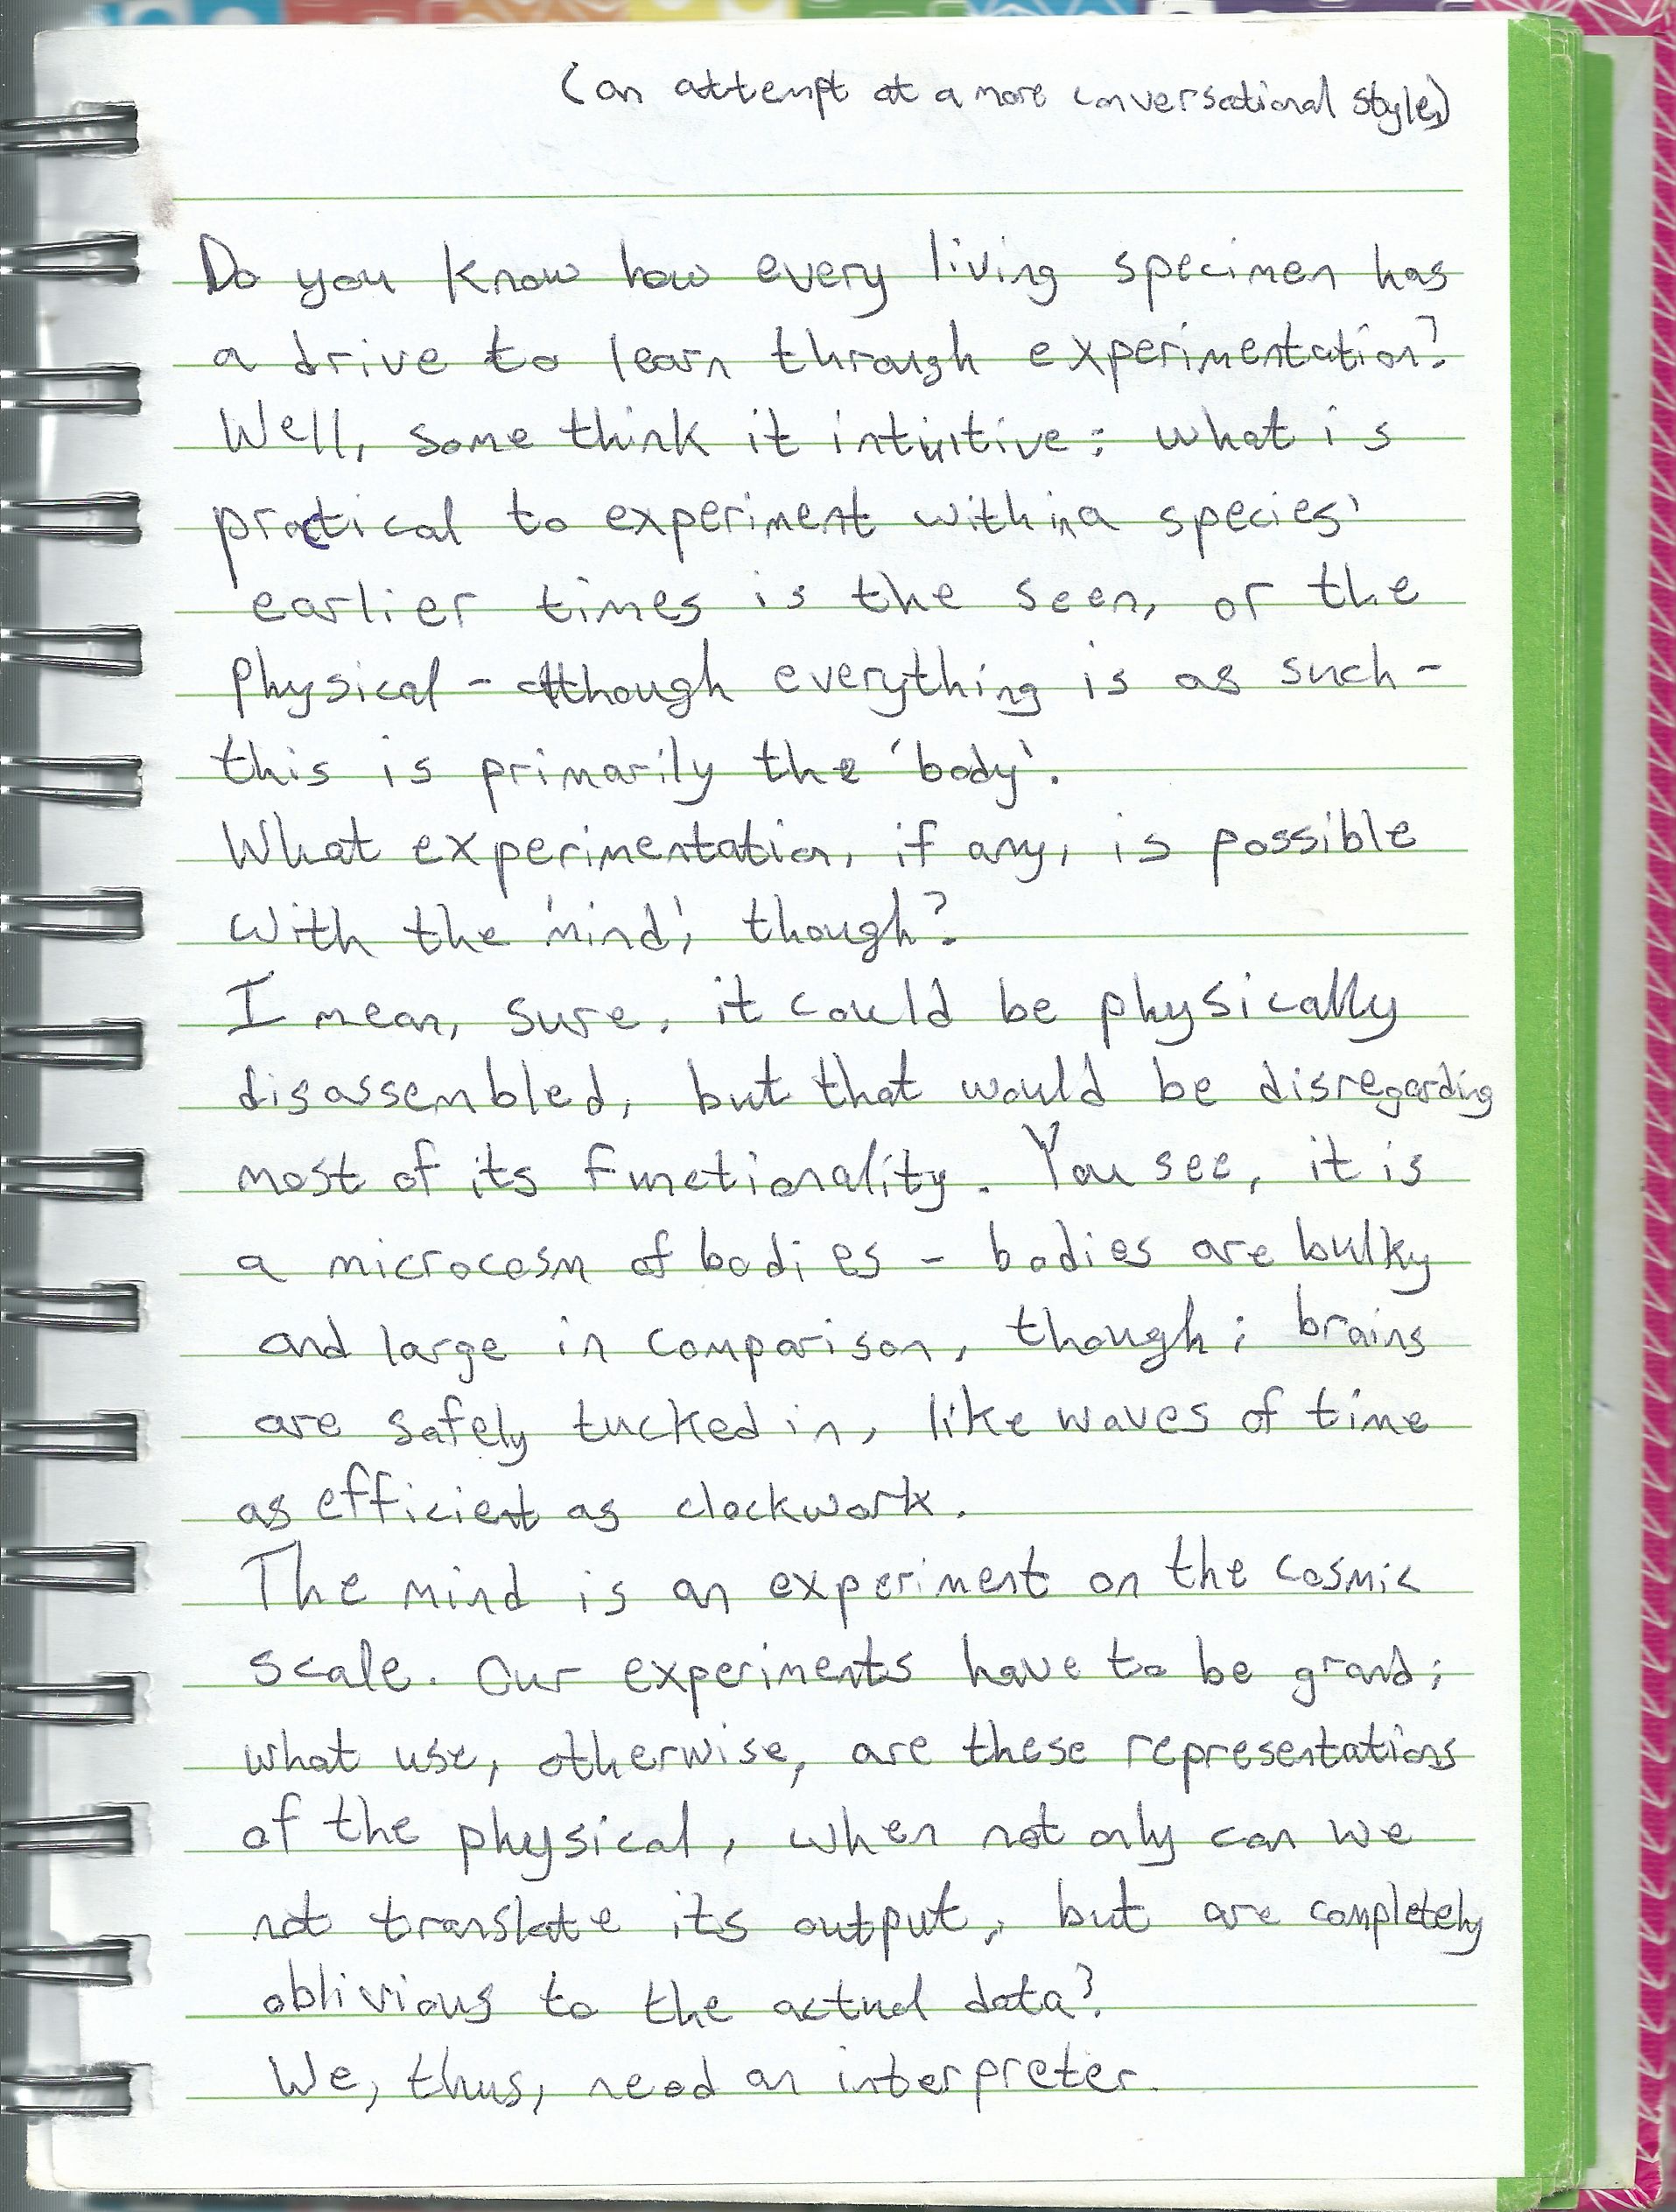 (an attempt at a more conversational style)
Do you know how every living specimen has
a drive to learn through experimentation?
Well, some think it intuitive: what is
practical to experiment within a species'
earlier times is the seen, or the
physical - although everything is as such -
this is primarily the 'body'.
What experimentation, if any, is possible
with the 'mind', though?
I mean, sure, it could be physically
disassembled, but that would be disregarding
most of its functionality. You see, it is
a microcosm of bodies - bodies are bulky
and large in comparison, though; brains
are safely tucked in, like waves of time
as efficient as clockwork.
The mind is an experiment on the cosmic
scale. Our experiments have to be grand;
what use, otherwise, are these representations
of the physical, when not only can we
not translate its output, but are completely
oblivious to the actual data?
We, thus, need an interpreter.